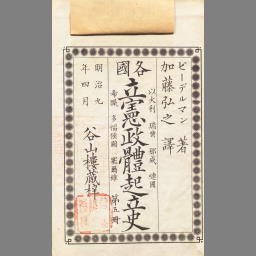 ビーデルマン 著
加藤弘之 譯
以太利 瑞典 那威 嗹國
各國
立憲政體起立史
希臘 多惱候國 塞爾維
第五冊
明治九年四月
谷山樓蔵梓